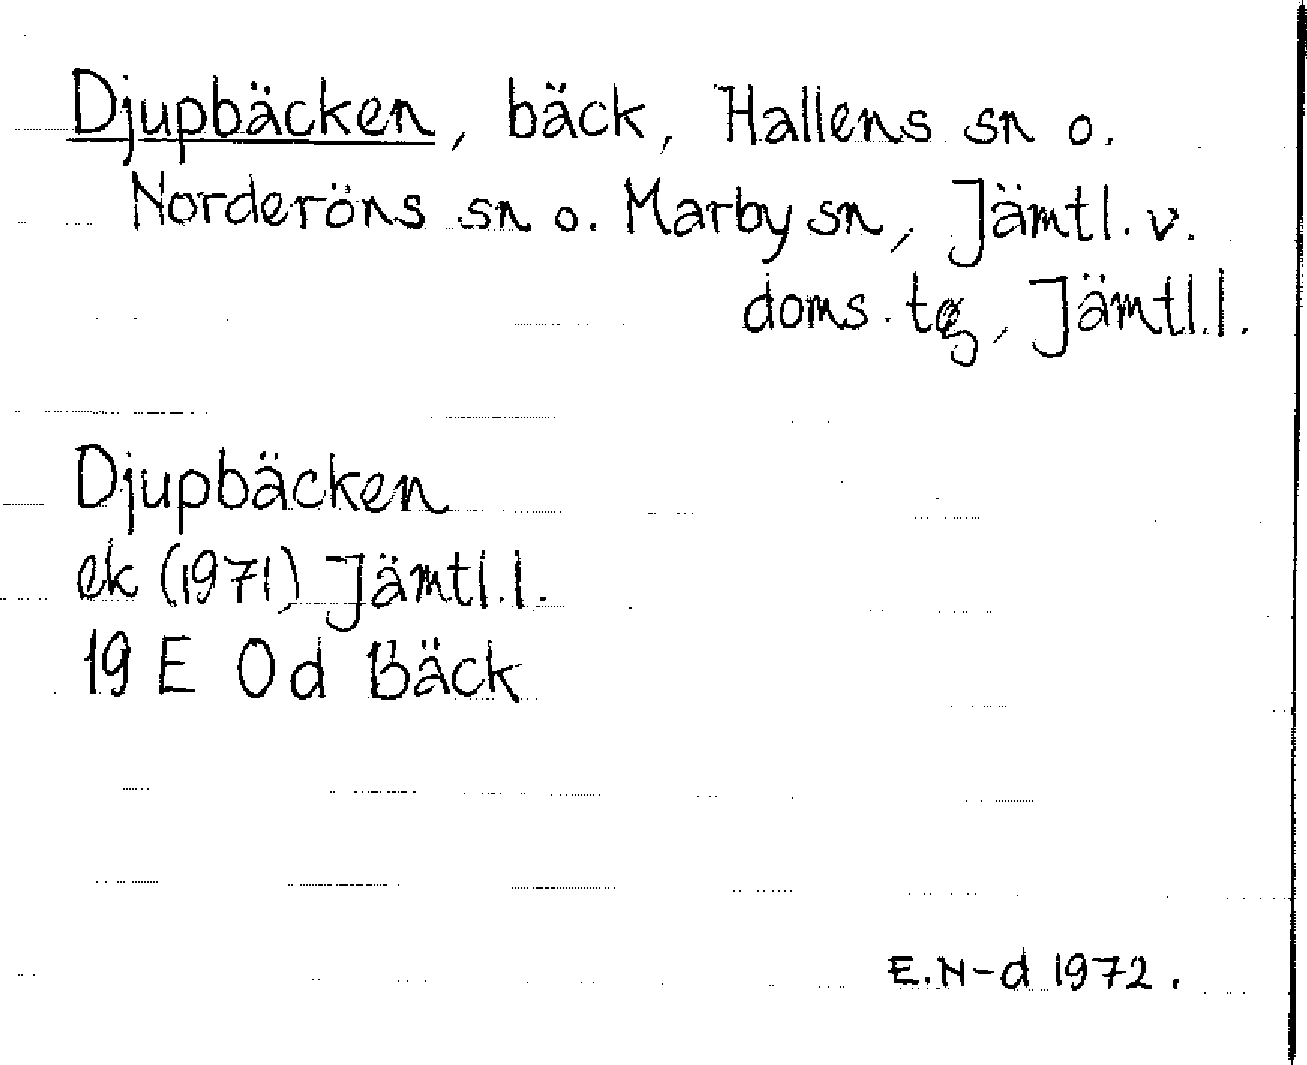 Djupbäcken, bäck, Hallens sn o.
Norderöns sn o. Marby sn, Jämtl. v.
doms. tg, Jämtl.l.
Djupbäcken
ek (1971) Jämtl.l.
19 E 0d Bäck
E.N-d 1972.